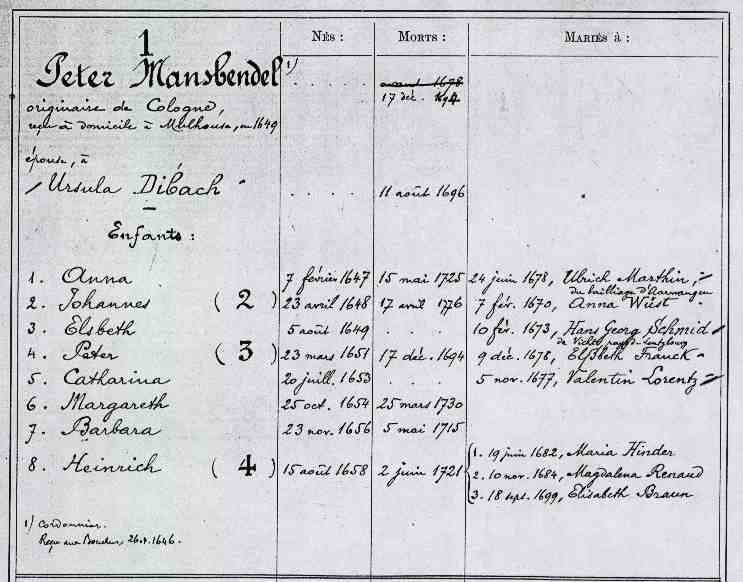 Nés :
Morts :
Mariés à :
1
Peter Mansbendel 1)
. . . . .
avant 1678
17 déc. 1694
originaire de Cologne,
reçu à domicile à Mulhouse, en 1649
épouse, à
Ursula Dibach
. . . .
11 août 1696
Enfants :
1. Anna 7 février 1647 15 mai 1725 24 juin 1678, Ulrich Marthin,
du bailliage d'Aarwangen
2. Johannes (2) 23 avril 1648 17 avril 1776 7 fév. 1670, Anna Wüst
3. Elsbeth 5 août 1649 . . . 10 fév. 1673, Hans Georg Schmid
de
4. Peter (3) 23 mars 1651 17 déc. 1694 9 déc. 1678, Elsbeth Franck
5. Catharina 20 juill. 1653 . . . 5 nov. 1677, Valentin Lorentz
6. Margareth 25 oct. 1654 25 mars 1730
7. Barbara 23 nov. 1656 5 mai 1715
8. Heinrich (4) 15 août 1658 2 juin 1721
1. 19 juin 1682, Maria Hinder
2. 10 nov. 1684, Magdalena Renaud
3. 18 sept. 1699, Elisabeth Braun
1) Cordonnier.
Reçu aux 1646.